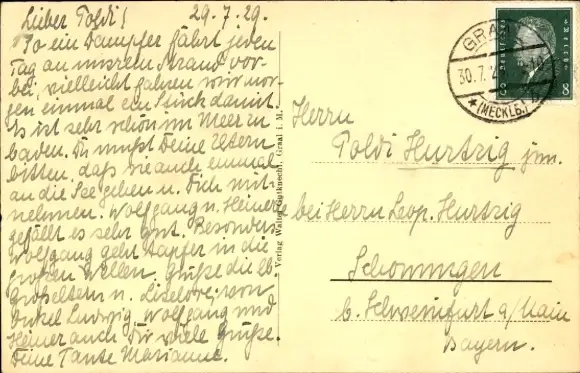 Lieber Poldi! 29.7.29.
So ein Dampfer fährt jeden
Tag an unserem Strand vor-
bei, vielleicht fahren wir mor-
gen einmal ein Stück damit.
Es ist sehr schön im Meer zu
baden. Du mußt Deine Eltern
bitten, daß sie auch einmal
an die See gehen u. Dich mit-
nehmen. Wolfgang u. Heinerle
gefällt es sehr gut. Besonders
Wolfgang geht tapfer in die
großen Wellen. Grüße die lb.
Großeltern u. Liselore, von
Onkel Ludwig, Wolfgang und
Heiner auch Dir viele Grüße.
Deine Tante Marianne.
Verlag Walter Gutknecht, Graal i. M.
GRAAL
30.7.2
(MECKLB.)
8 8
Herrn
Poldi Hurtzig jun.
bei Herrn Leop. Hurtzig
Schonungen
b. Schweinfurt a/Main
Bayern.